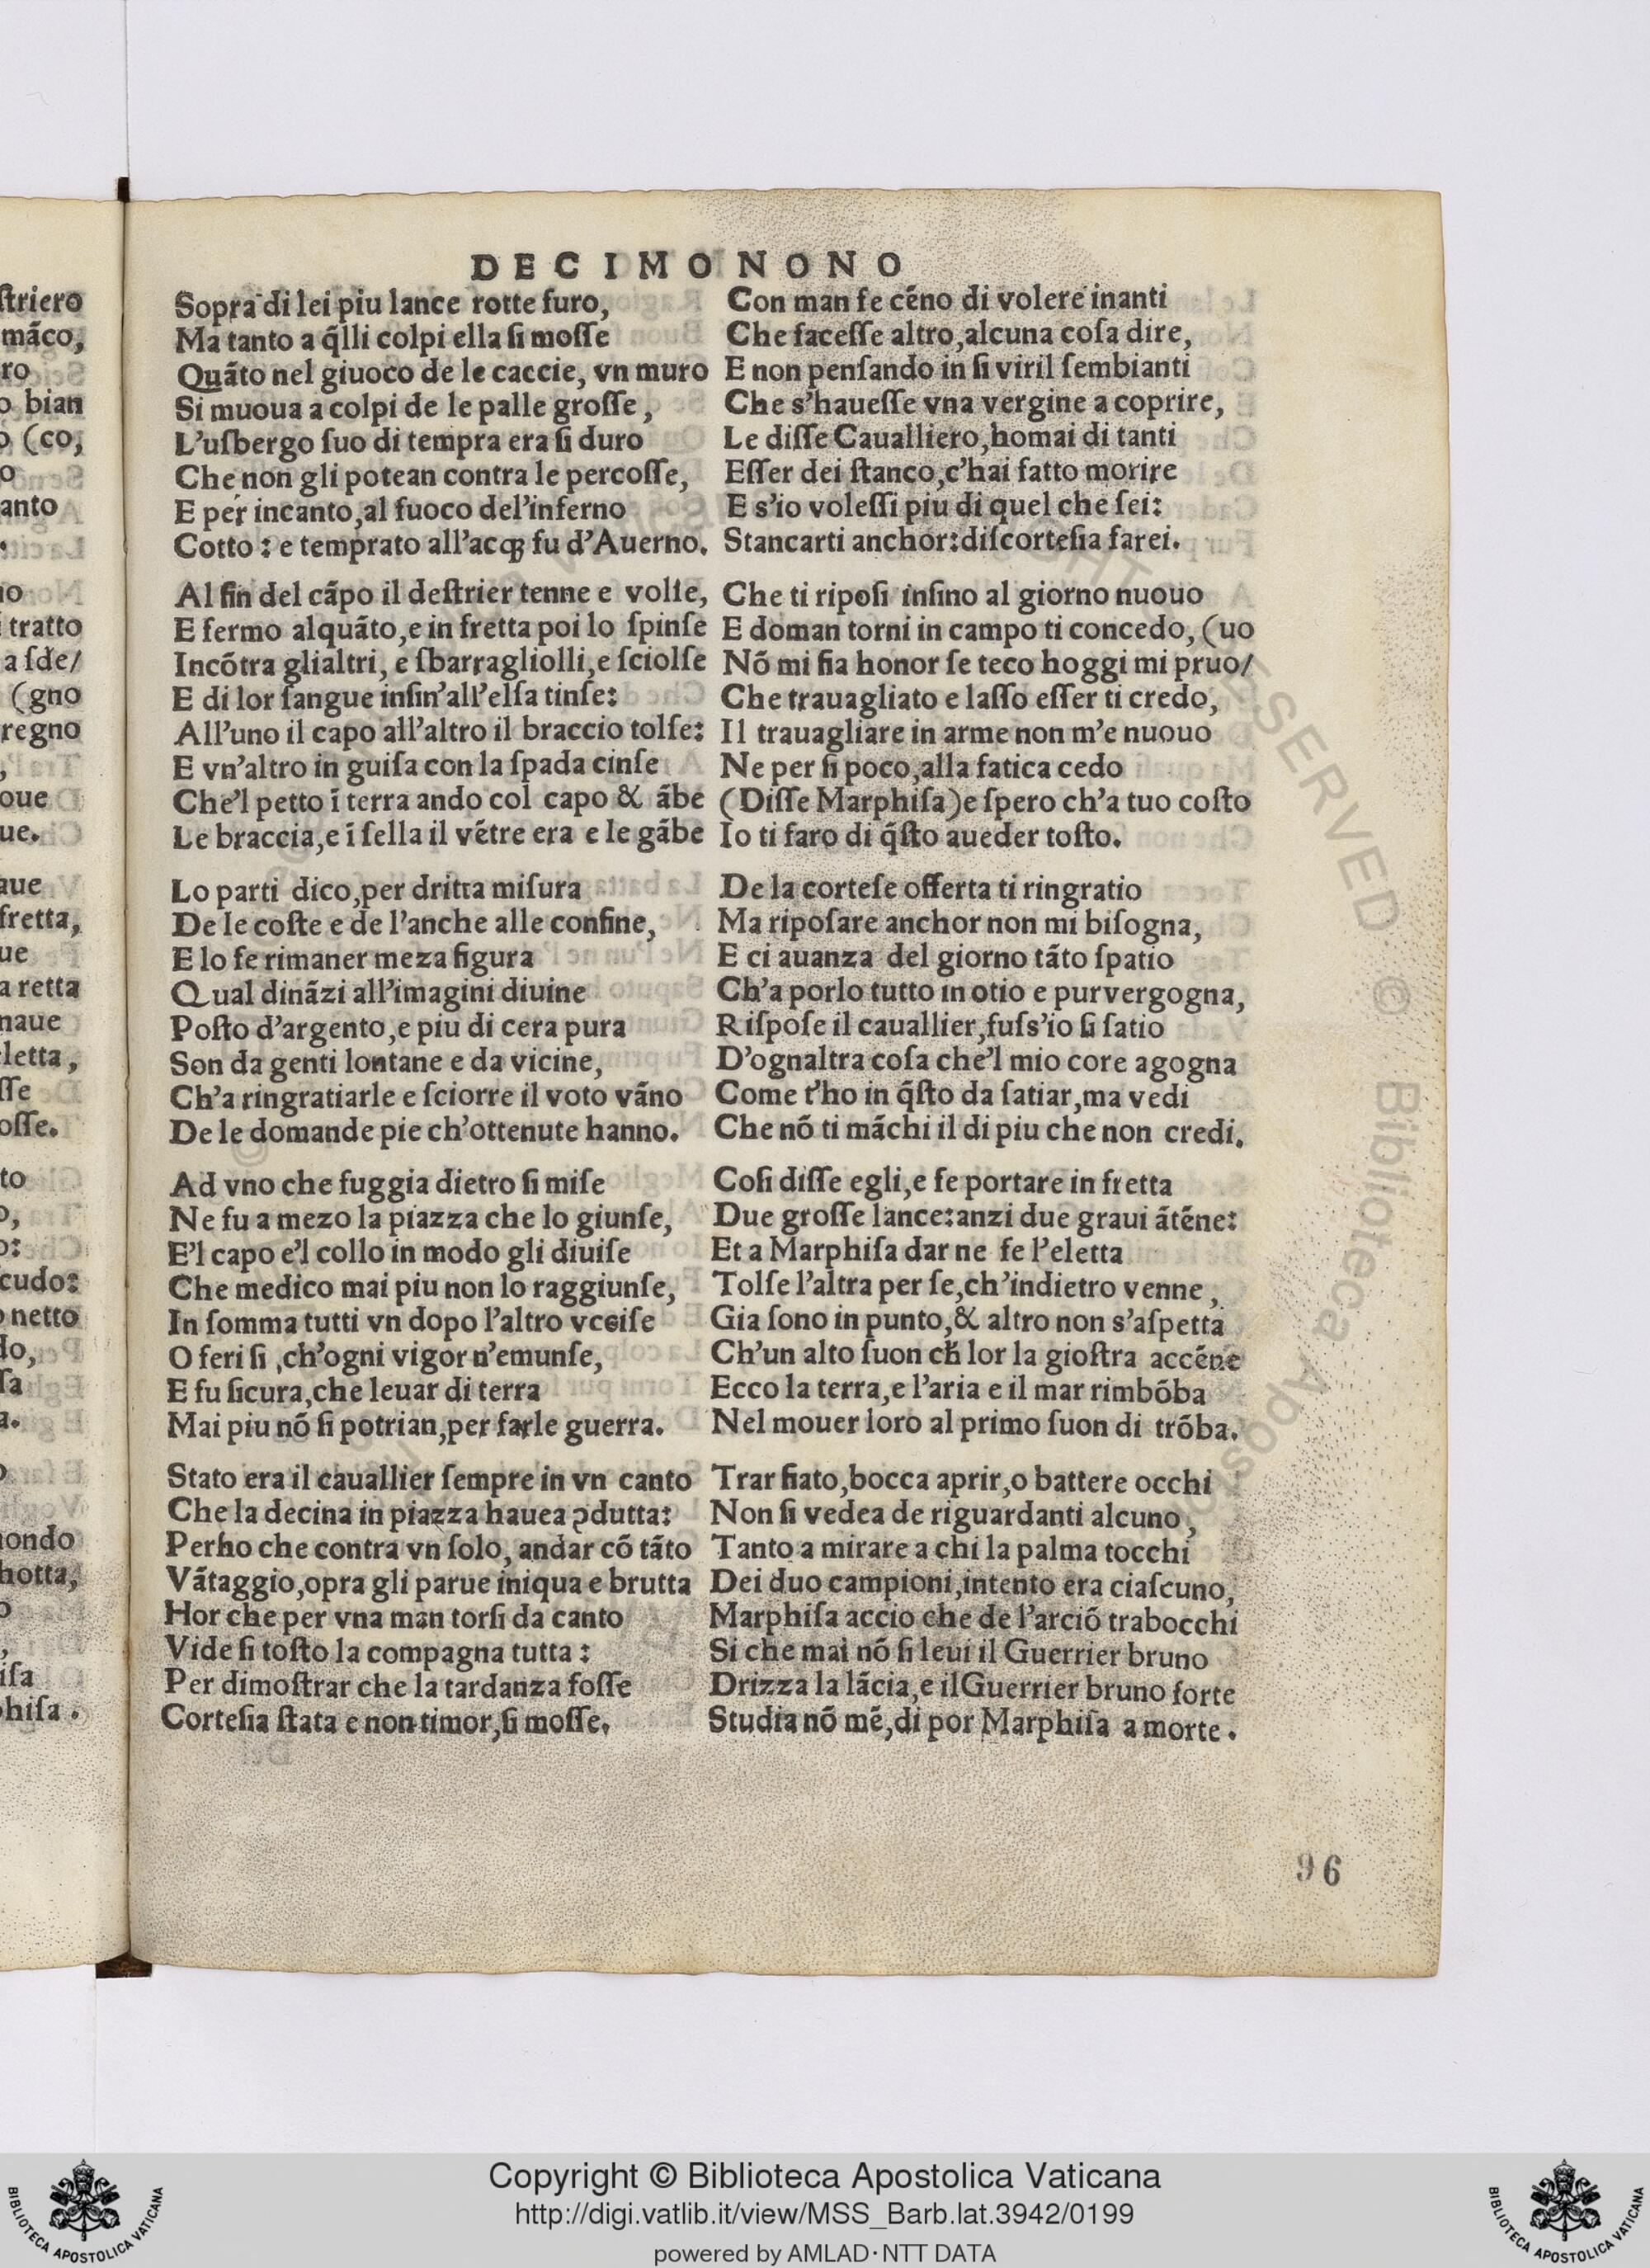 DECIMONONO
Sopra di lei piu lance rotte furo,
Ma tanto a q̃lli colpi ella ſi moſſe
Quãto nel giuoco de le caccie, vn muro
Si muoua a colpi de le palle groſſe,
L'uſbergo ſuo di tempra era ſi duro
Che non gli potean contra le percoſſe,
E per incanto,al fuoco del'inferno
Cotto: e temprato all'acqꝫ fu d'Auerno.
Al fin del cãpo il deſtrier tenne e volſe,
E fermo alquãto,e in fretta poi lo ſpinſe
Incõtra glialtri, e ſbarragliolli,e ſciolſe
E di lor ſangue inſin'all'elſa tinſe:
All'uno il capo all'altro il braccio tolſe:
E vn'altro in guiſa con la ſpada cinſe
Che'l petto ĩ terra ando col capo & ãbe
Le braccia,e ĩ ſella il vẽtre era e le gãbe
Lo parti dico,per dritta miſura
De le coſte e de l'anche alle confine,
E lo fe rimaner meza figura
Qual dinãzi all'imagini diuine
Poſto d'argento,e piu di cera pura
Son da genti lontane e da vicine,
Ch'a ringratiarle e ſciorre il voto vãno
De le domande pie ch'ottenute hanno.
Ad vno che fuggia dietro ſi miſe
Ne fu a mezo la piazza che lo giunſe,
E'l capo e'l collo in modo gli diuiſe
Che medico mai piu non lo raggiunſe,
In ſomma tutti vn dopo l'altro vcciſe
O feri ſi ,ch'ogni vigor n'emunſe,
E fu ſicura,che leuar di terra
Mai piu nõ ſi potrian,per farle guerra.
Stato era il cauallier ſempre in vn canto
Che la decina in piazza hauea ꝓdutta:
Perho che contra vn ſolo, andar cõ tãto
Vãtaggio,opra gli parue iniqua e brutta
Hor che per vna man torſi da canto
Vide ſi toſto la compagna tutta:
Per dimoſtrar che la tardanza foſſe
Corteſia ſtata e non timor,ſi moſſe.
Con man fe cẽno di volere inanti
Che faceſſe altro,alcuna coſa dire,
E non penſando in ſi viril ſembianti
Che s'haueſſe vna vergine a coprire,
Le diſſe Caualliero,homai di tanti
Eſſer dei ſtanco,c'hai fatto morire
E s'io voleſſi piu di quel che ſei:
Stancarti anchor:diſcorteſia farei.
Che ti ripoſi inſino al giorno nuouo
E doman torni in campo ti concedo, (uo
Nõ mi fia honor ſe teco hoggi mi pruo/
Che trauagliato e laſſo eſſer ti credo,
Il trauagliare in arme non m'e nuouo
Ne per ſi poco,alla fatica cedo
(Diſſe Marphiſa)e ſpero ch'a tuo coſto
Io ti faro di q̃ſto aueder toſto.
De la corteſe offerta ti ringratio
Ma ripoſare anchor non mi biſogna,
E ci auanza del giorno tãto ſpatio
Ch'a porlo tutto in otio e pur vergogna,
Riſpoſe il cauallier,fuſs'io ſi ſatio
D'ognaltra coſa che'l mio core agogna
Come t'ho in q̃ſto da ſatiar,ma vedi
Che nõ ti mãchi il di piu che non credi.
Coſi diſſe egli,e fe portare in fretta
Due groſſe lance:anzi due graui ãtẽne:
Et a Marphiſa dar ne fe l'eletta
Tolſe l'altra per ſe,ch'indietro venne,
Gia ſono in punto,& altro non s'aſpetta
Ch'un alto ſuon ch̃ lor la gioſtra accẽne
Ecco la terra,e l'aria e il mar rimbõba
Nel mouer loro al primo ſuon di trõba.
Trar fiato,bocca aprir,o battere occhi
Non ſi vedea de riguardanti alcuno,
Tanto a mirare a chi la palma tocchi
Dei duo campioni,intento era ciaſcuno,
Marphiſa accio che de l'arciõ trabocchi
Si che mai nõ ſi leui il Guerrier bruno
Drizza la lãcia,e il Guerrier bruno forte
Studia nõ mẽ,di por Marphiſa a morte.
96
Copyright © Biblioteca Apostolica Vaticana
http://digi.vatlib.it/view/MSS_Barb.lat.3942/0199
powered by AMLAD·NTT DATA